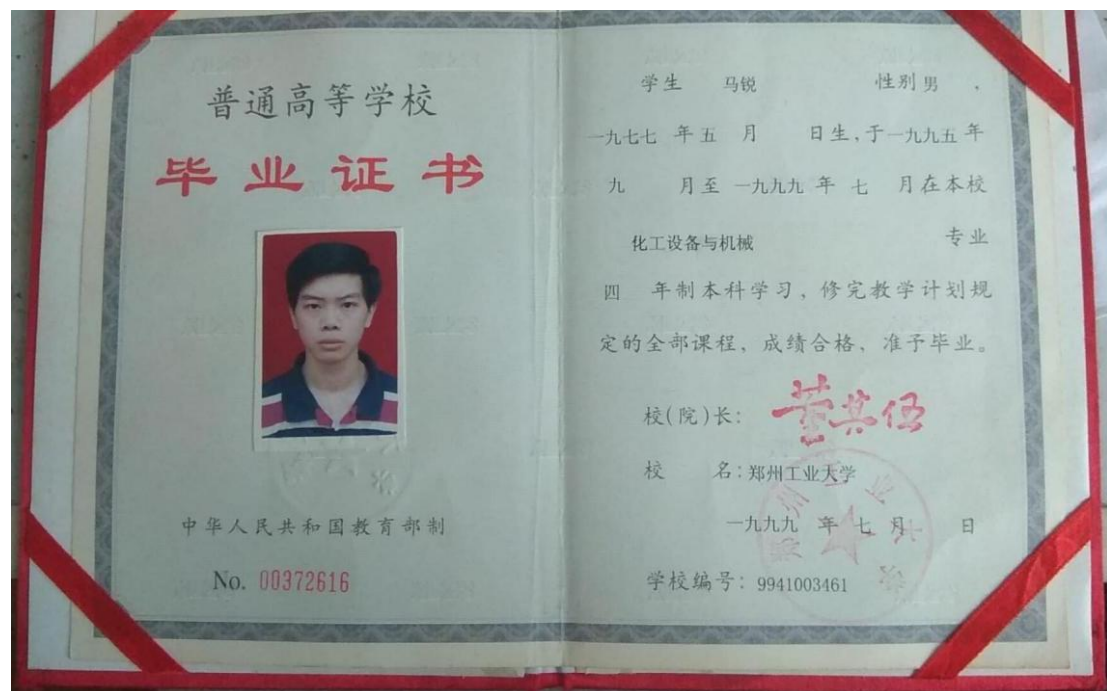 普通高等学校
毕业证书
中华人民共和国教育部制
No. 00372616
学生 马锐 性别 男 ,
一九七七 年 五 月 日生,于 一九九五 年
九 月至 一九九九 年 七 月在本校
化工设备与机械 专业
四 年制本科学习，修完教学计划规
定的全部课程，成绩合格，准予毕业。
校(院)长: 董其伍
校 名: 郑州工业大学
一九九九 年 七 月 日
学校编号: 9941003461
郑州工业大学